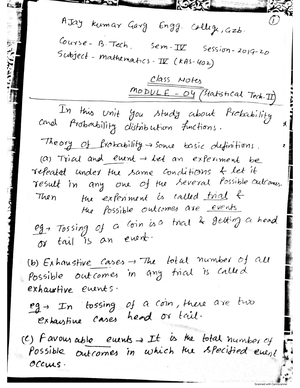 1
AJay Kumar Garg Engg. College, Gzb.
Course - B Tech. Sem - IV Session - 2019-20
Subject - Mathematics - IV (KAS-402)
Class Notes
MODULE - 04 (Statistical Tech. II)
In this unit you study about Probability
and Probability distribution functions.
Theory of Probability → Some basic definitions.
(a) Trial and event → Let an experiment be
repeated under the same conditions & let it
result in any one of the several Possible outcomes.
Then the experiment is called trial &
the Possible outcomes are events.
eg → Tossing of a coin is a trial & getting a head
or tail is an event.
(b) Exhaustive cases → The total number of all
Possible outcomes in any trial is called
exhaustive events.
eg → In tossing of a coin, there are two
exhaustive cases head or tail.
(c) Favourable events → It is the total number of
Possible outcomes in which the specified event
occurs.
Scanned with CamScanner